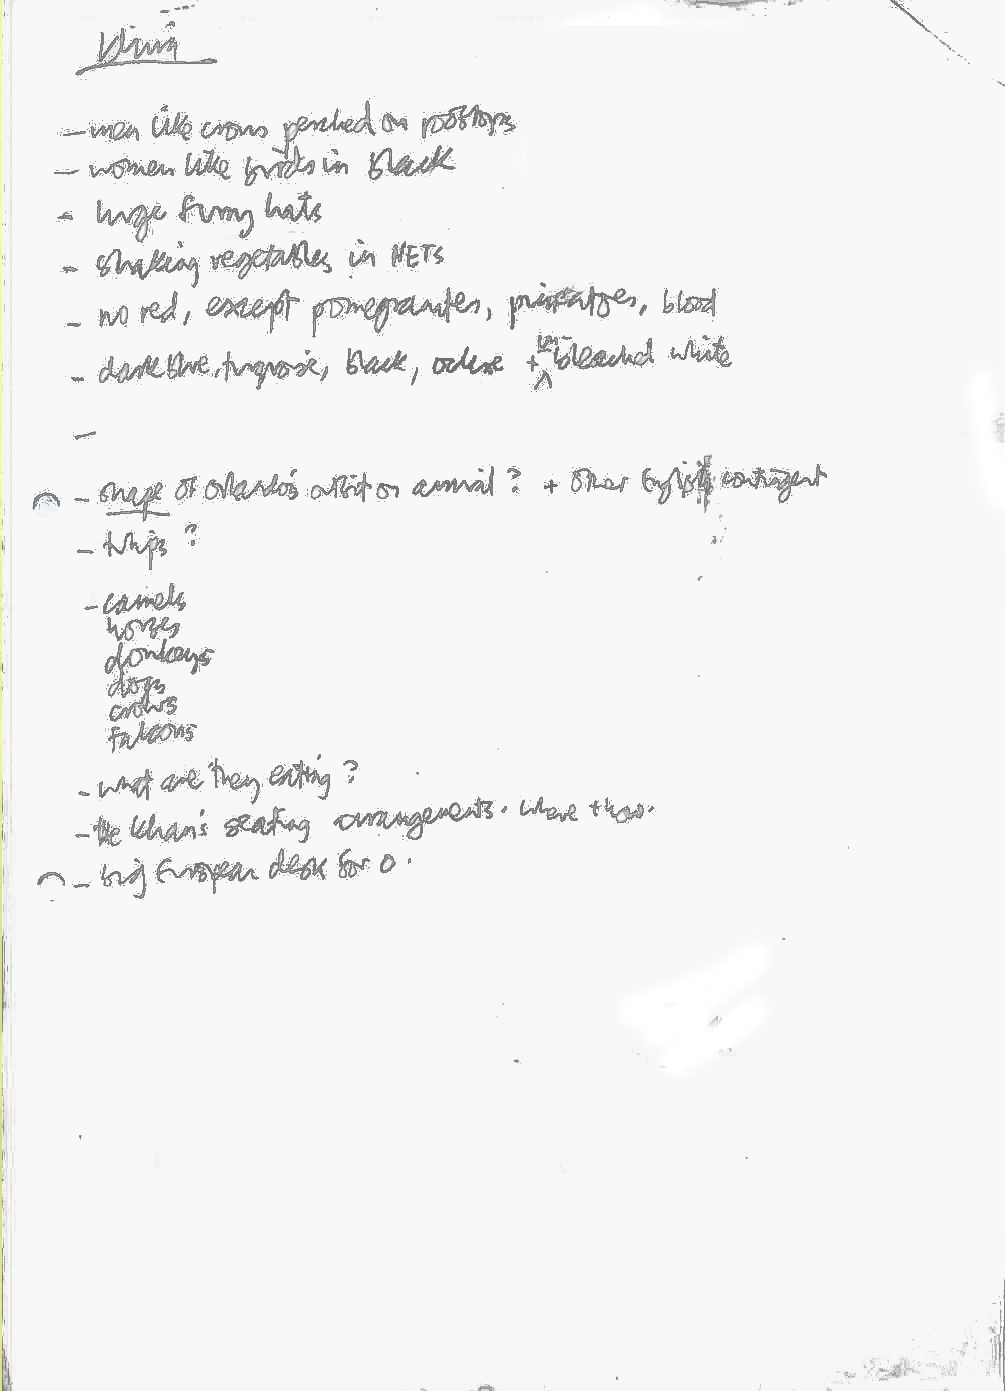 Khiva
- men like crows perched on rooftops
- women like brides in black
- huge furry hats
- shaking vegetables in NETS
- no red, except pomegranates, , blood
- dark blue, turquoise, black, ochre + un-bleached white
-
- shape of Orlando's outfit on arrival? + other English contingent
- tulips?
- camels
horses
donkeys
dogs
crows
falcons
- what are they eating?
- the Khan's seating arrangements. where + how.
- big European desk for O.